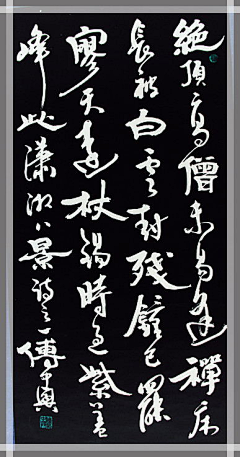 絶頂高僧未易逢禪床
長被白雲封殘鐘已罷
寥天遠杖錫時過紫蓋
峰此瀟湘八景詩之一傅申興